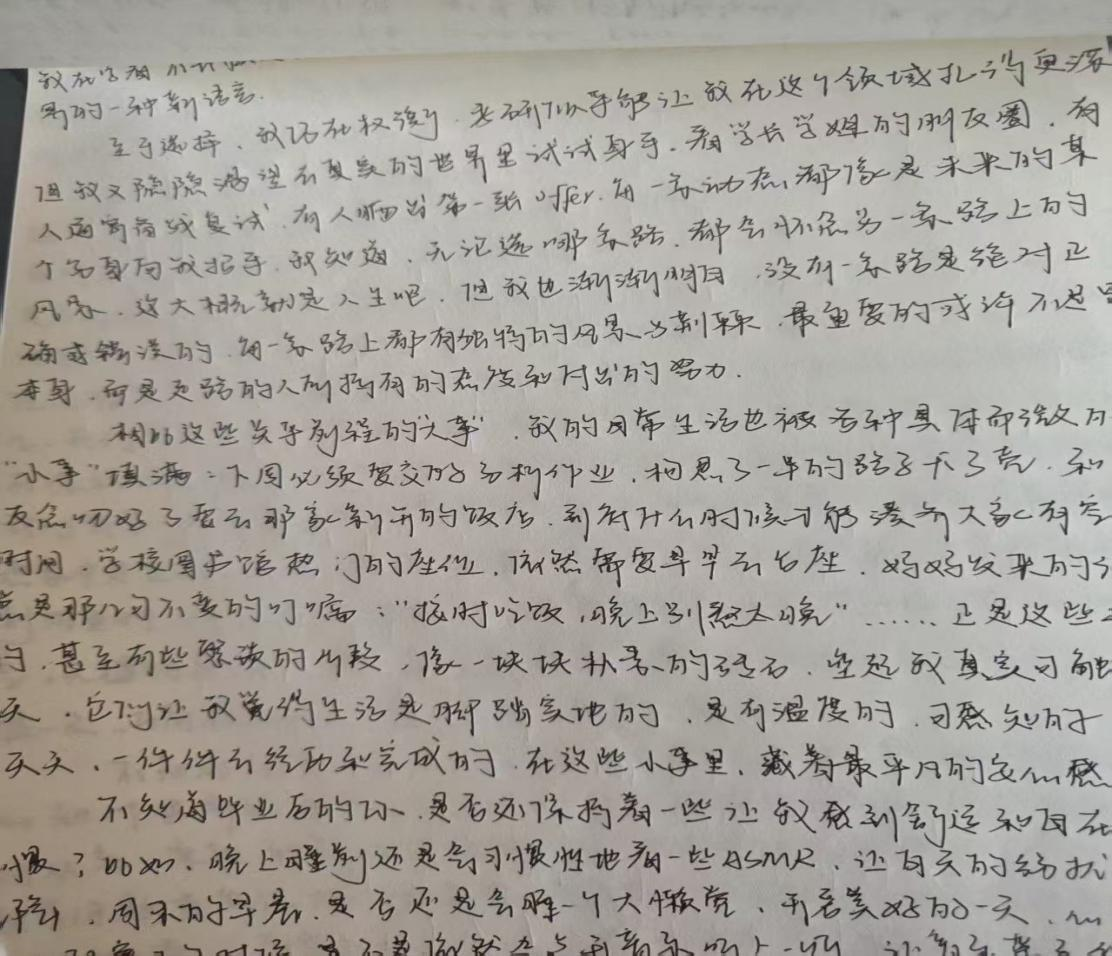 我在学着
界的一种新语言.
至于选择、我还在权衡. 考研似乎能让我在这个领域扎得更深
但我又隐隐渴望去真实的世界里试试身手. 看学长学姐的朋友圈、有
人通宵备战复试、有人晒出第一张offer. 每一条动态、都像是未来的某
个分身向我招手. 我知道、无论选哪条路、都会怀念另一条路上的
风景、这大概就是人生吧. 但我也渐渐明白、没有一条路是绝对正
确或错误的. 每一条路上都有独特的风景与荆棘. 最重要的或许不是
本身. 而是走路的人所持有的态度和付出的努力.
相比这些关乎前程的"大事"、我的日常生活也被各种具体而微的
"小事"填满：下周必须要交的专栏作业、构思了一半的路子卡了壳、和
友念叨好了要去那家新开的饭店、到底什么时候才能凑齐大家有空
时间、学校图书馆热门的座位、依然需要早早去占座、妈妈发来的
总是那几句不变的叮嘱："按时吃饭、晚上别熬太晚" …… 正是这些
的、甚至有些琐碎的片段、像一块块朴素的砖石、垒起我真实可触
天、它们让我觉得生活是脚踏实地的、是有温度的、可感知的
天天、一件件去经历和完成的. 在这些小事里、藏着最平凡的安心感
不知道毕业后的你、是否还保持着一些让我感到舒适和自在
惯？比如、晚上睡前还是会习惯性地看一些ASMR、让白天的纷扰
周末的早晨、是否还是会睡一个大懒觉、开启美好的一天、